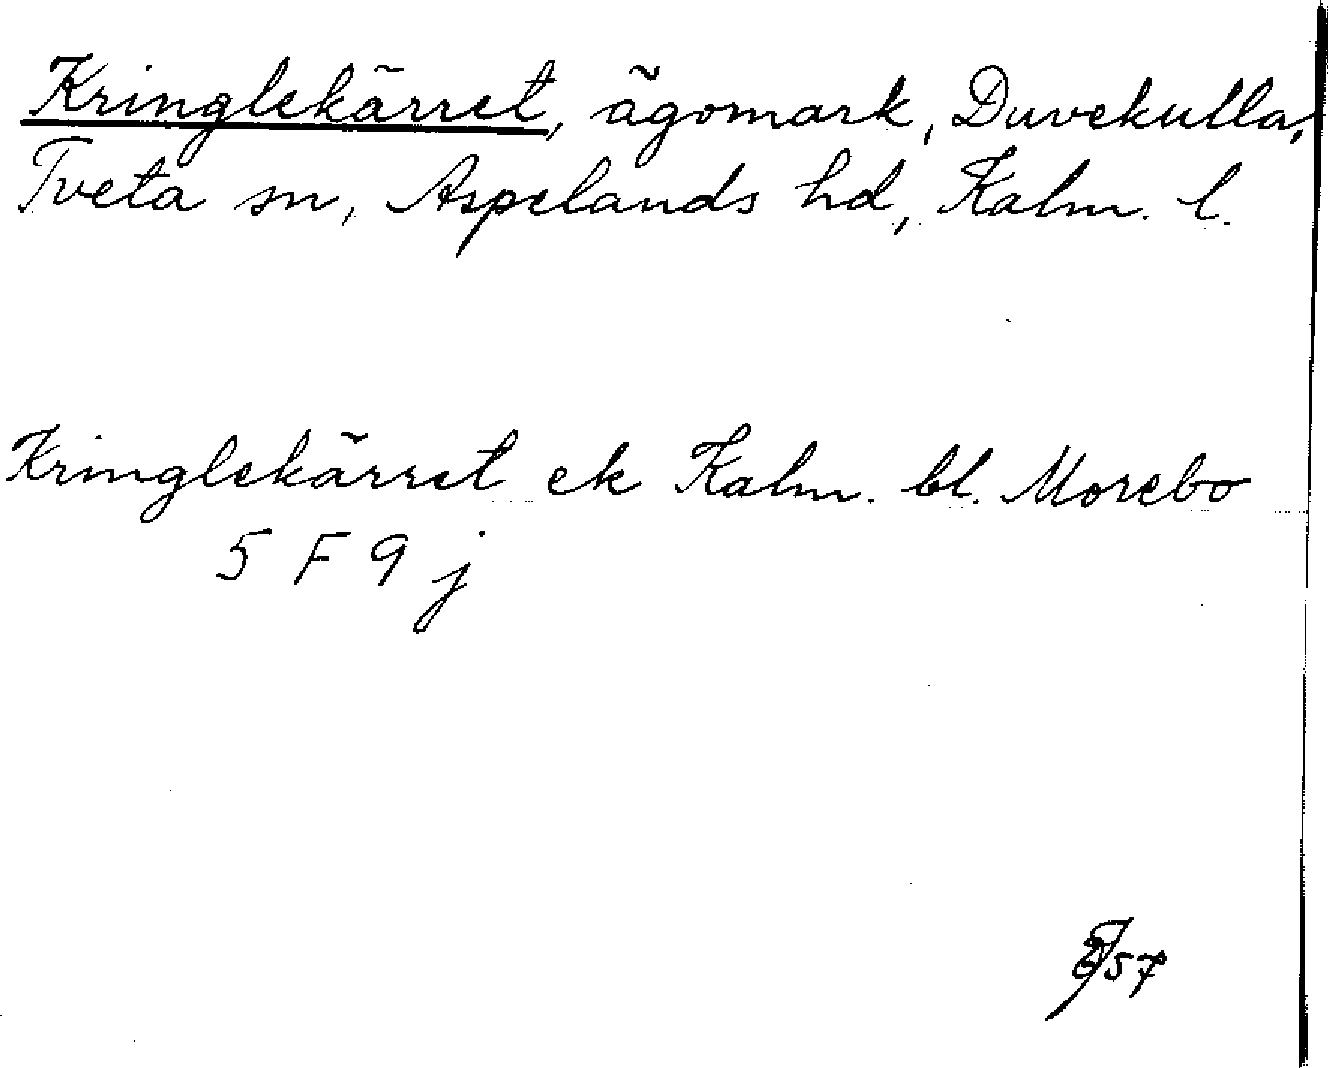 Kringlekärret, ägomark, Duvekulla,
Tveta sn, Aspelands hd, Kalm. l.
Kringlekärret ek Kalm. bl. Morebo
5 F 9 j
57